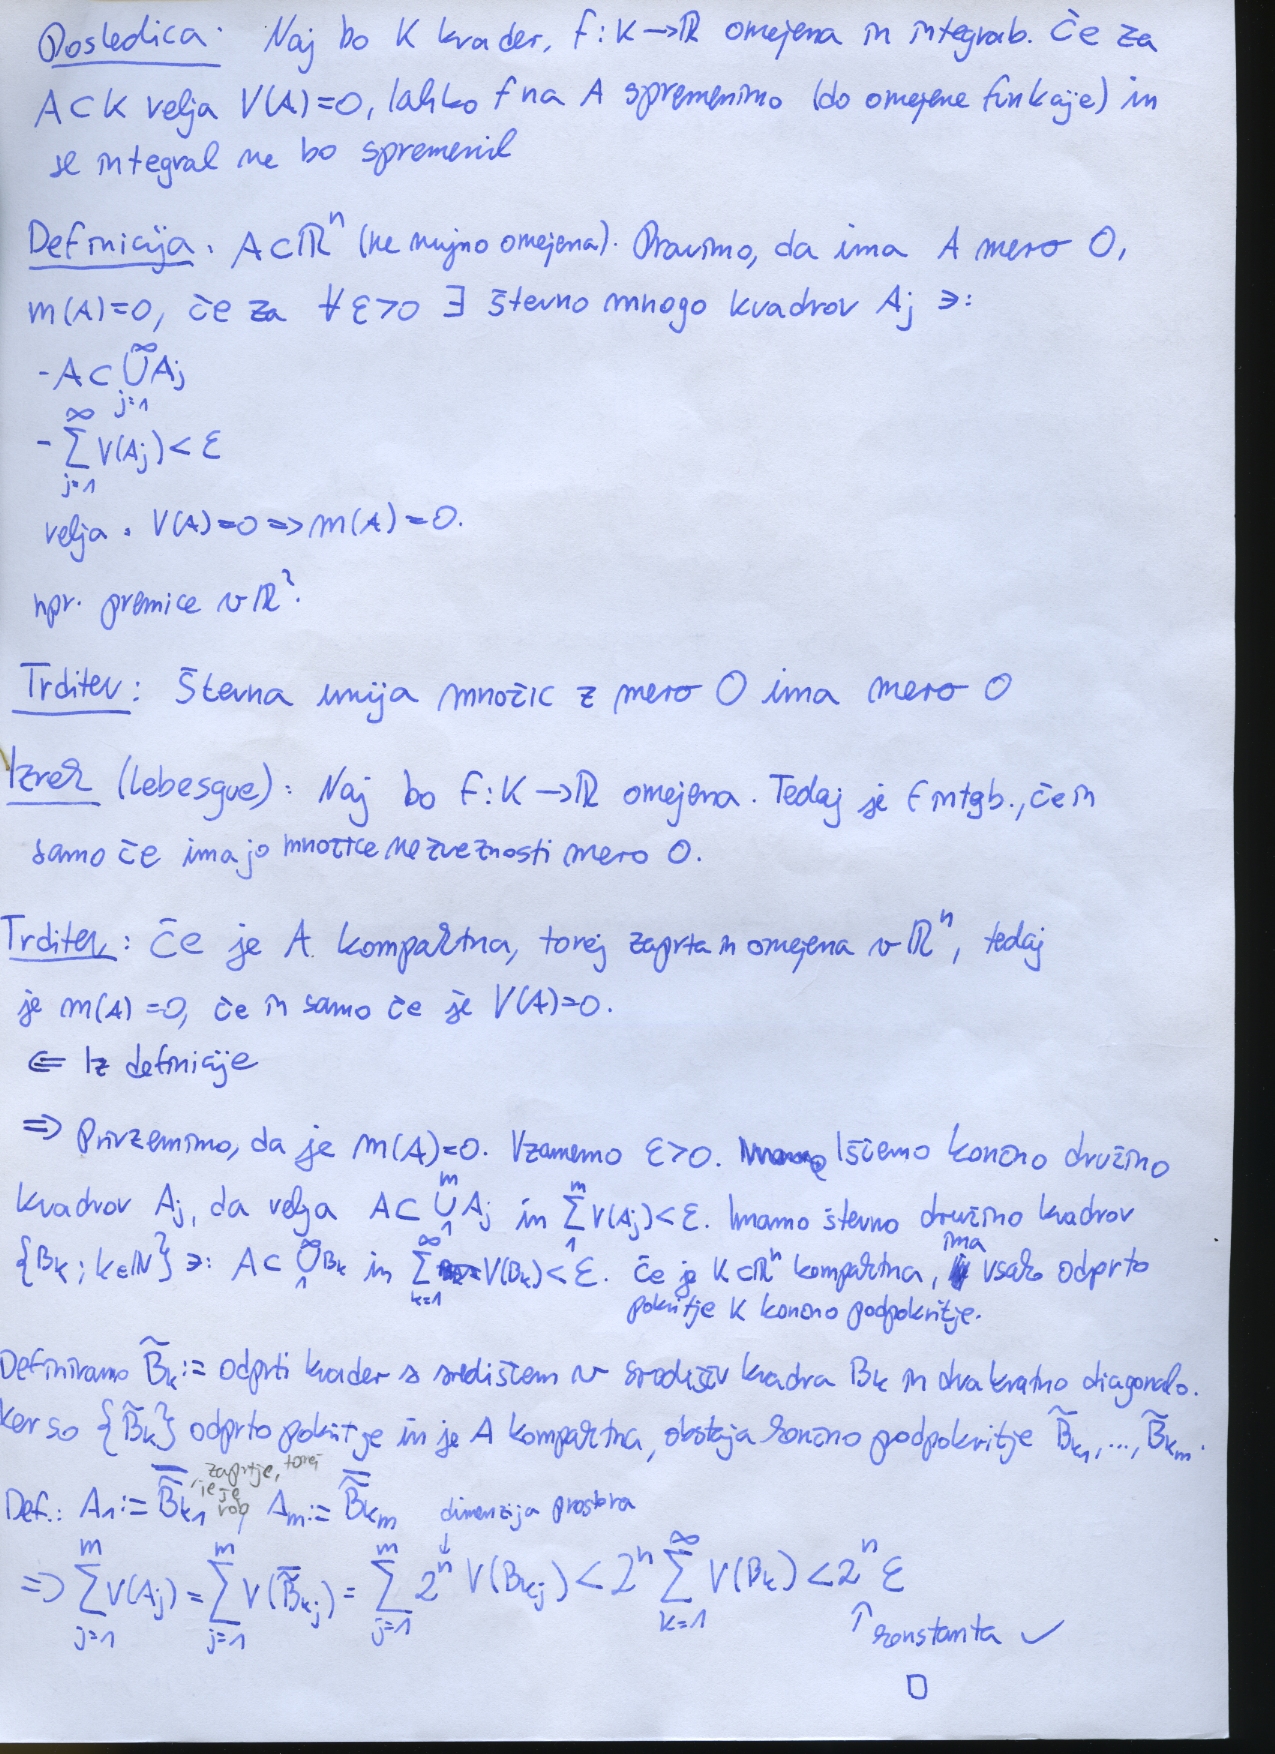 Posledica: Naj bo K kvader, f: K → ℝ omejena in integrab. Če za
A ⊂ K velja V(A)=0, lahko f na A spremenimo (do omejene funkcije) in
se integral ne bo spremenil
Definicija. A ⊂ ℝⁿ (ne nujno omejena). Pravimo, da ima A mero 0,
m(A)=0, če za ∀ε>0 ∃ števno mnogo kvadrov Aj ∋:
- A ⊂ ⋃_{j=1}^∞ Aj
- ∑_{j=1}^∞ V(Aj) < ε
velja. V(A)=0 => m(A)=0.
npr. premice v ℝ².
Trditev: Števna unija množic z mero 0 ima mero 0
Izrek (Lebesgue): Naj bo f: K → ℝ omejena. Tedaj je f intgb., če in
samo če imajo množice nezveznosti mero 0.
Trditev: Če je A kompaktna, torej zaprta in omejena v ℝⁿ, tedaj
je m(A)=0, če in samo če je V(A)=0.
⇐ Iz definicije
=> Privzemimo, da je m(A)=0. Vzamemo ε>0. Iščemo končno družino
kvadrov Aj, da velja A ⊂ ⋃_1^m Aj in ∑_1^m V(Aj) < ε. Imamo števno družino kvadrov
{Bk; k∈ℕ} ∋: A ⊂ ⋃_1^∞ Bk in ∑_{k=1}^∞ V(Bk) < ε. Če je K ⊂ ℝⁿ kompaktna, ima vsako odprto
pokritje K končno podpokritje.
Definiramo B̃k := odprti kvader s središčem v središču kvadra Bk in dvakratno diagonalo.
Ker so {B̃k} odprto pokritje in je A kompaktna, obstaja končno podpokritje B̃_{k1}, ..., B̃_{km}.
zaprtje, torej
je
rob
Def.: A1 := \overline{B̃}_{k1}, Am := \overline{B̃}_{km} dimenzija prostora
=> ∑_{j=1}^m V(Aj) = ∑_{j=1}^m V(\overline{B̃}_{kj}) = ∑_{j=1}^m 2ⁿ V(B_{kj}) < 2ⁿ ∑_{k=1}^∞ V(Bk) < 2ⁿ ε
↑ konstanta ✓
□